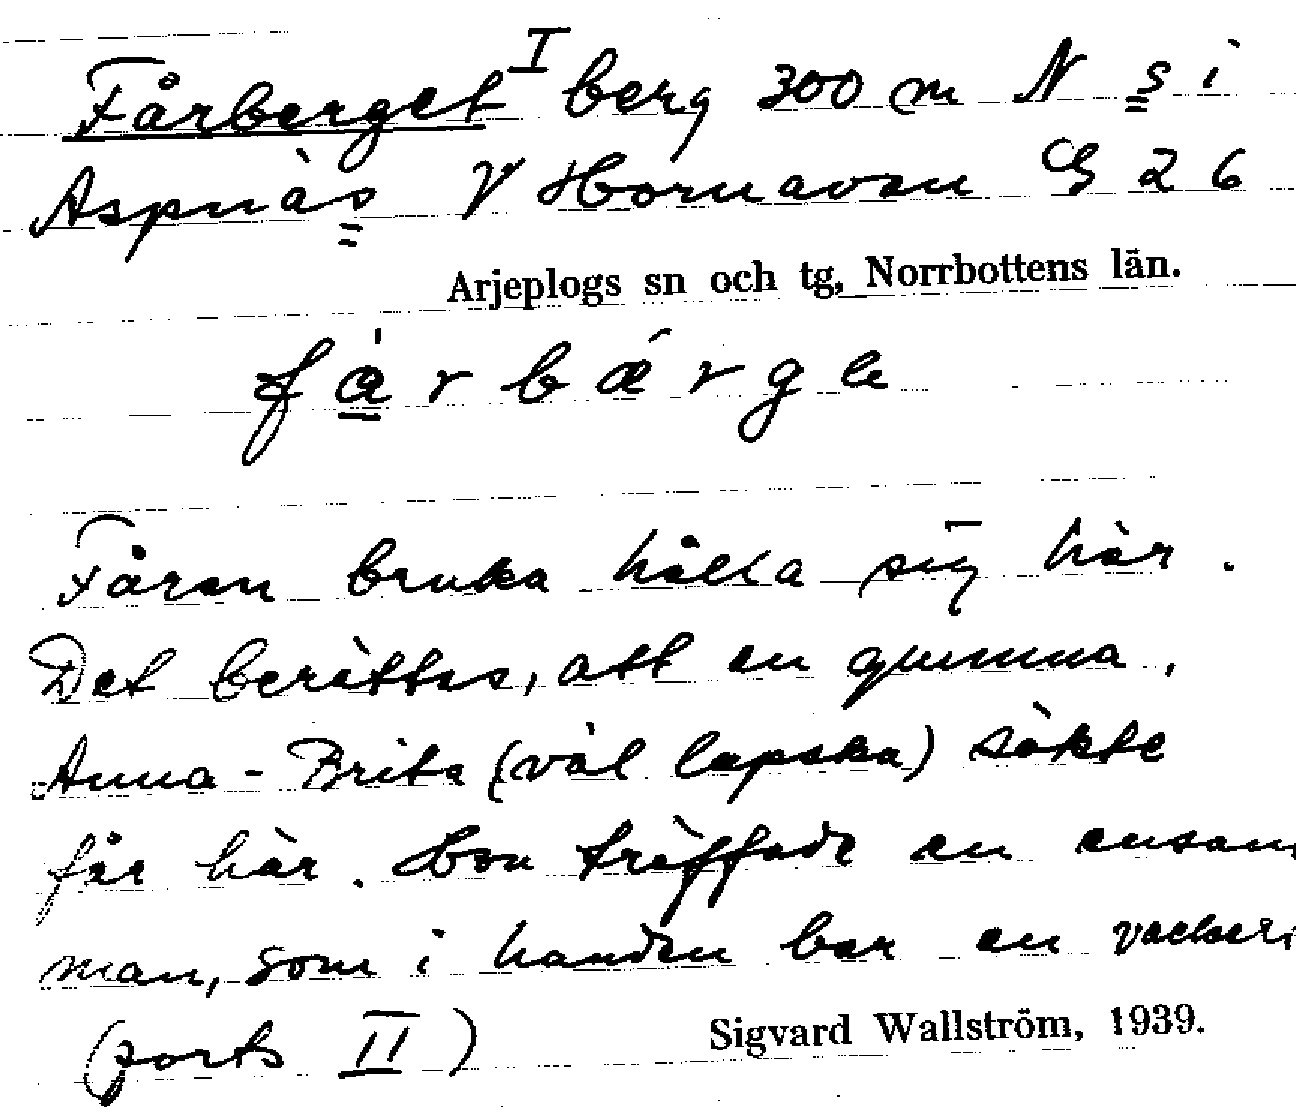 Fårberget I berg 300 m N s i
Aspnäs V Hornavan G 26
Arjeplogs sn och tg, Norrbottens län.
få̱rbǽrge
Fåren bruka hålla sig här.
Det berättas, att en gumma,
Anna-Brita (väl lapska) sökte
får här. Hon träffade en ensam
man, som i handen bar en vacker
(forts II)
Sigvard Wallström, 1939.